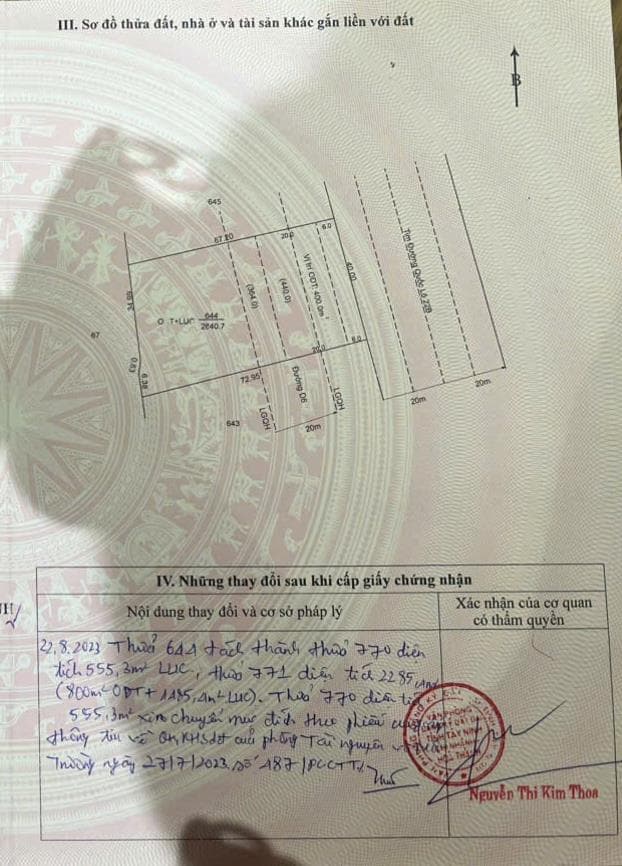 III. Sơ đồ thửa đất, nhà ở và tài sản khác gắn liền với đất
B
645
67.20
20.0
6.0
34.59
(364.0)
(440.0)
Vị trí ODT: 400.0m²
40.00
Tim Đường Quốc Lộ 22B
O T+LUC 644
2840.7
67
0.63
6.38
72.95
20.0
6.0
643
LGQH
Đường D6
LGQH
20m
20m
20m
IV. Những thay đổi sau khi cấp giấy chứng nhận
Nội dung thay đổi và cơ sở pháp lý
Xác nhận của cơ quan
có thẩm quyền
22.8.2023 Thửa 644 tách thành thửa 770 diện
tích 555,3m² LUC, thửa 771 diện tích 2285,4m²
(800m² ODT + 1485,4m² LUC). Thửa 770 diện tích
555,3m² xin chuyển mục đích theo phiếu cung cấp
thông tin về QH, KHSdđ của phòng Tài nguyên và Môi
Trường ngày 27/7/2023 số 187/PCCTT
Nguyễn Thi Kim Thoa